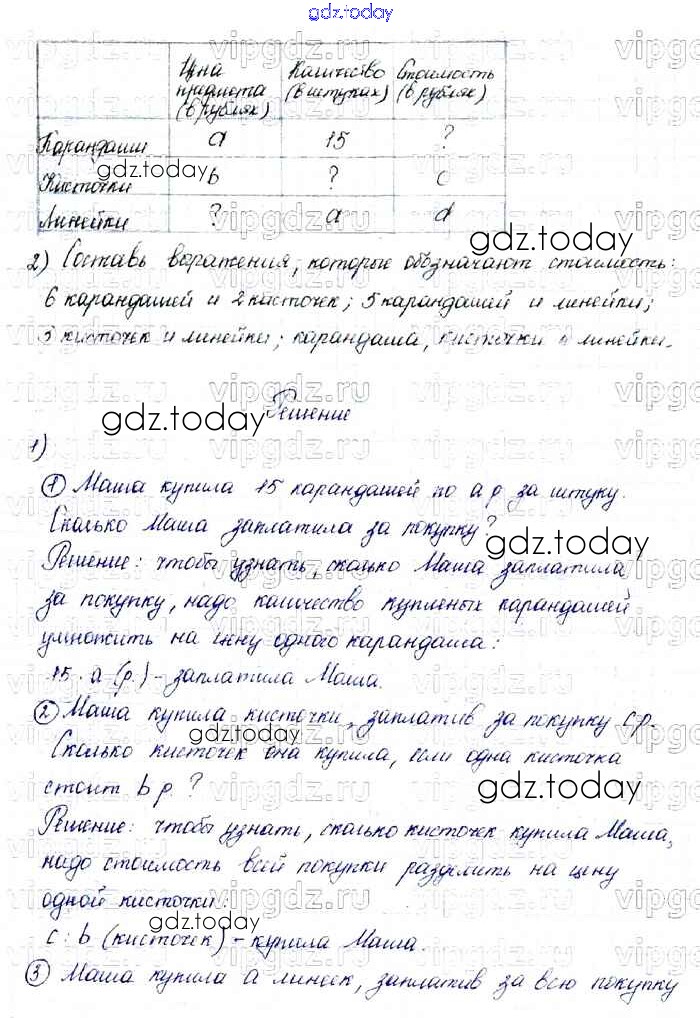 gdz.today
Цена Количество Стоимость
предмета (в штуках) (в рублях)
(в рублях)
Карандаши a 15 ?
Кисточки b ? c
Линейки ? a d
2) Составь выражения, которые обозначают стоимость:
6 карандашей и 2 кисточек; 5 карандашей и линейки;
3 кисточек и линейки; карандаша, кисточки и линейки.
Решение
1)
① Маша купила 15 карандашей по a р. за штуку.
Сколько Маша заплатила за покупку?
Решение: чтобы узнать, сколько Маша заплатила
за покупку, надо количество купленых карандашей
умножить на цену одного карандаша:
15 · a (р.) - заплатила Маша.
② Маша купила кисточки, заплатив за покупку c р.
Сколько кисточек она купила, если одна кисточка
стоит b р.?
Решение: чтобы узнать, сколько кисточек купила Маша,
надо стоимость всей покупки разделить на цену
одной кисточки:
c : b (кисточек) - купила Маша.
③ Маша купила a линеек, заплатив за всю покупку